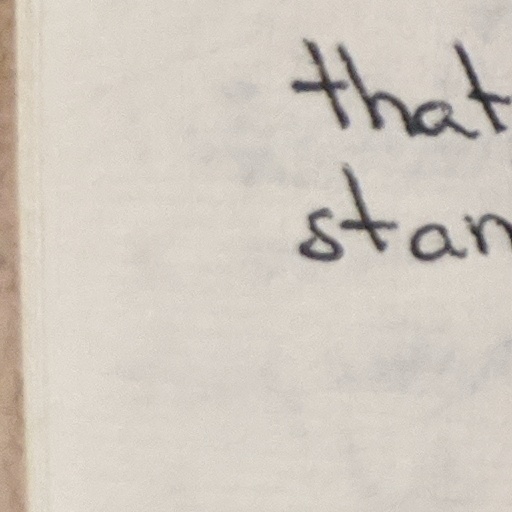 that
stan